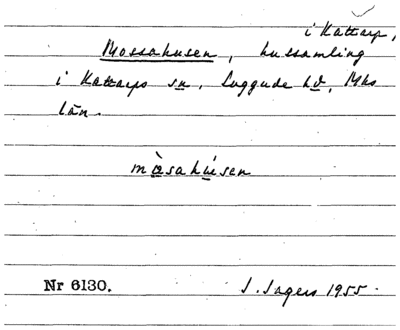 i Kattarp,
Mossahusen, hussamling
i Kattarps sn, Luggude hd, Mhs
län.
mòsahúsen
Nr 6130. J. Sagers 1955.